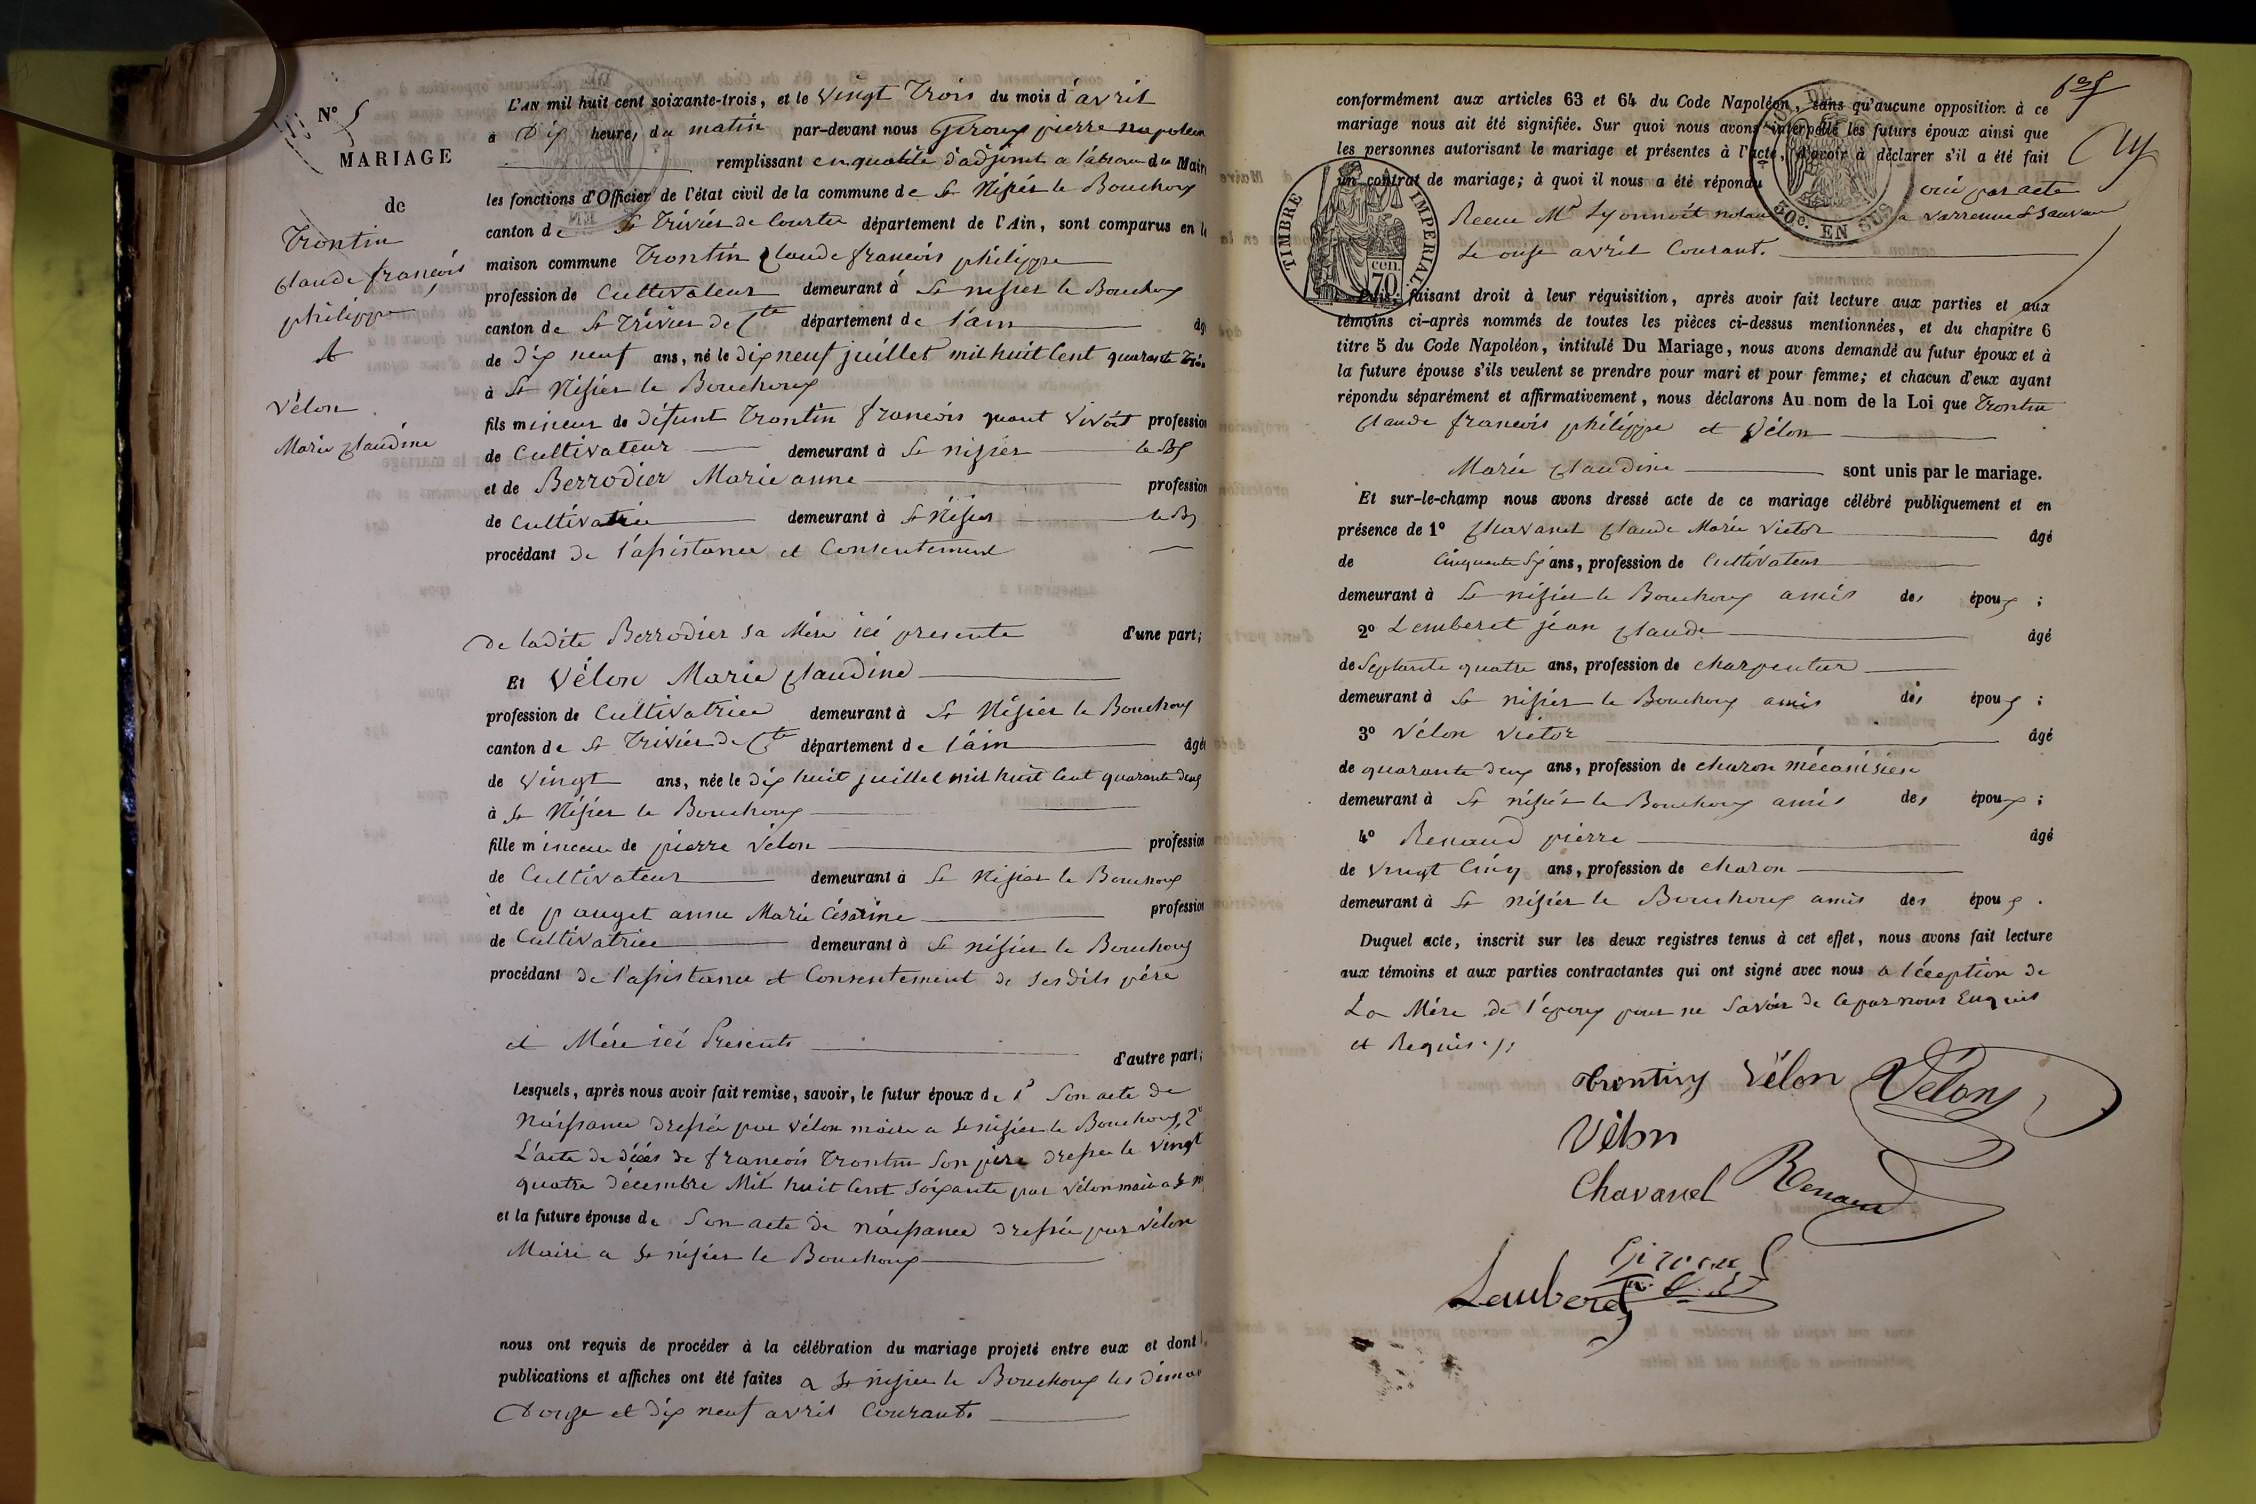 N° 5
MARIAGE
de
Trontin
Claude françois
philippe
et
Vélon
Marie Claudine
L'AN mil huit cent soixante-trois, et le vingt trois du mois d'avril
a Dix heures du matin par-devant nous Giroux pierre napoleon
remplissant en qualité d'adjoint a l'absence du Maire
les fonctions d'Officier de l'état civil de la commune de St Nizier le Bouchoux
canton de St Trivier de Courtes département de l'Ain, sont comparus en la
maison commune Trontin Claude françois philippe
profession de Cultivateur demeurant à St nizier le Bouchoux
canton de St Trivier de Ctes département de l'ain âgé
de dix neuf ans, né le dix neuf juillet mil huit Cent quarante trois
à St Nizier le Bouchoux
fils mineur de défunt Trontin françois quant vivoit profession
de Cultivateur demeurant à St nizier le Bx
et de Berrodier Marie anne profession
de Cultivatrice demeurant à St Nizier le Bx
procédant de l'assistance et Consentement
de ladite Berrodier sa Mère ici presente d'une part;
Et Vélon Marie Claudine
profession de Cultivatrice demeurant à St Nizier le Bouchoux
canton de St Trivier de Ctes département de l'ain âgée
de vingt ans, née le dix huit juillet mil huit Cent quarante deux
à St Nizier le Bouchoux
fille mineure de pierre Vélon profession
de Cultivateur demeurant à St Nizier le Bouchoux
et de pauget anne Marie Césarine profession
de Cultivatrice demeurant à St nizier le Bouchoux
procédant de l'assistance et Consentement de sesdits père
et Mère ici Présents d'autre part;
Lesquels, après nous avoir fait remise, savoir, le futur époux de 1° Son acte de
Naissance dressée par vélon maire a St nizier le Bouchoux, 2°
L'acte de décès de françois Trontin Son père dressé le vingt
quatre décembre Mil huit Cent soixante par vélon maire a St n
et la future épouse de Son acte de naissance dressée par vélon
Maire a St nizier le Bouchoux
nous ont requis de procéder à la célébration du mariage projeté entre eux et dont
publications et affiches ont été faites a St nizier le Bouchoux les diman
Douze et dix neuf avril Courant.
conformément aux articles 63 et 64 du Code Napoléon, sans qu'aucune opposition à ce
mariage nous ait été signifiée. Sur quoi nous avons interpellé les futurs époux ainsi que
les personnes autorisant le mariage et présentes à l'acte, d'avoir à déclarer s'il a été fait
un contrat de mariage; à quoi il nous a été répondu oui par acte
Recu Me Lyonnoit notaire a varrenne St Sauveur
Le onze avril Courant.
TIMBRE IMPERIAL
70 cen.
50c. EN SUS
Puis, faisant droit à leur réquisition, après avoir fait lecture aux parties et aux
témoins ci-après nommés de toutes les pièces ci-dessus mentionnées, et du chapitre 6
titre 5 du Code Napoléon, intitulé Du Mariage, nous avons demandé au futur époux et à
la future épouse s'ils veulent se prendre pour mari et pour femme; et chacun d'eux ayant
répondu séparément et affirmativement, nous déclarons Au nom de la Loi que Trontin
Claude francois philippe et Vélon
Marie Claudine sont unis par le mariage.
Et sur-le-champ nous avons dressé acte de ce mariage célébré publiquement et en
présence de 1° Chavanel Claude Marie Victor âgé
de Cinquante Six ans, profession de Cultivateur
demeurant à St nizier le Bouchoux amis des époux ;
2° Lemberet jean Claude âgé
de Septante quatre ans, profession de charpentier
demeurant à St nizier le Bouchoux amis des époux ;
3° Vélon Victor âgé
de quarante deux ans, profession de charon mécanisien
demeurant à St nizier le Bouchoux amis des époux ;
4° Renaud pierre âgé
de vingt Cinq ans, profession de charon
demeurant à St nizier le Bouchoux amis des époux .
Duquel acte, inscrit sur les deux registres tenus à cet effet, nous avons fait lecture
aux témoins et aux parties contractantes qui ont signé avec nous a l'éception de
La Mère de l'époux pour ne Savoir de Ce par nous Enquis
et Requis.
Trontin Vélon Vélon
Vélon
Chavanel Renaud
Giroux
Lemberet